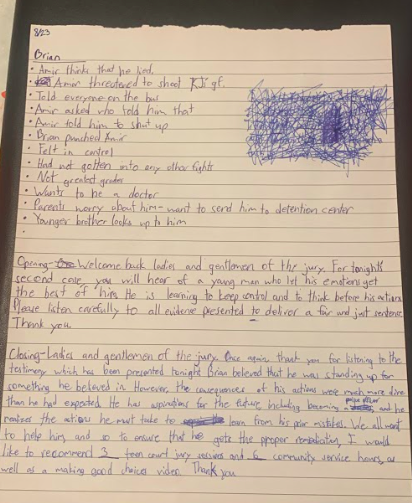 8/23
Brian
• Amir thinks that he lied.
• Amir threatened to shoot RJ's gf.
• Told everyone on the bus
• Amir asked who told him that
• Amir told him to shut up
• Brian punched Amir
• Felt in control
• Had not gotten into any other fights
• Not greatest grades
• Wants to be a doctor
• Parents worry about him - want to send him to detention center
• Younger brother looks up to him
•
Opening- Welcome back ladies and gentlemen of the jury. For tonight's
second case, you will hear of a young man who let his emotions get
the best of him. He is learning to keep control and to think before his actions
Please listen carefully to all evidence presented to deliver a fair and just sentence
Thank you
Closing- Ladies and gentlemen of the jury. Once again, thank you for listening to the
testimony which has been presented tonight. Brian believed that he was standing up for
something he believed in. However, the consequences of his actions were much more dire
than he had expected. He has aspirations for the future, including becoming a police officer, and he
realizes the actions he must take to learn from his prior mistakes. We all want
to help him, and so to ensure that he gets the proper remediation, I would
like to recommend 3 teen court jury services and 6 community service hours, as
well as a making good choices video. Thank you